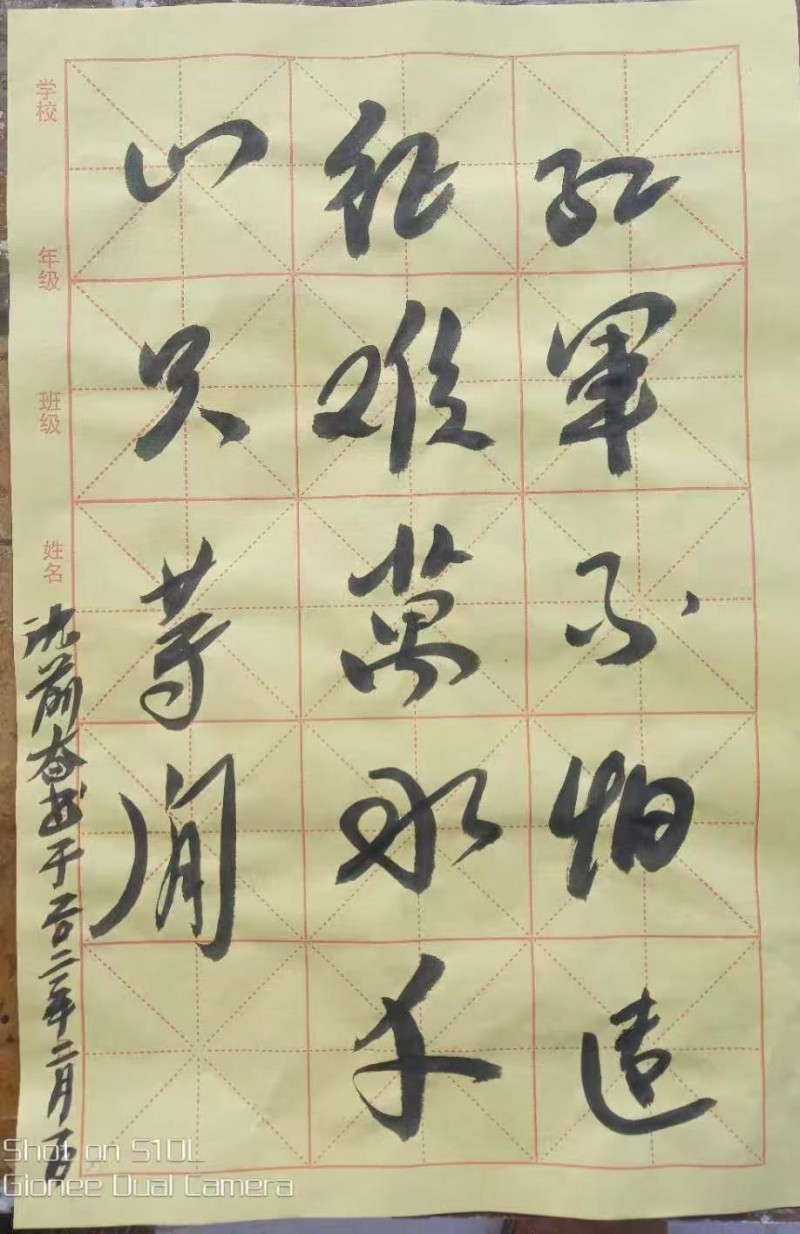 红軍不怕遠
征难萬水千
山只等闲
沈前奋书于二0二二年二月一日
学校
年级
班级
姓名
Shot on S10L
Gionee Dual Camera